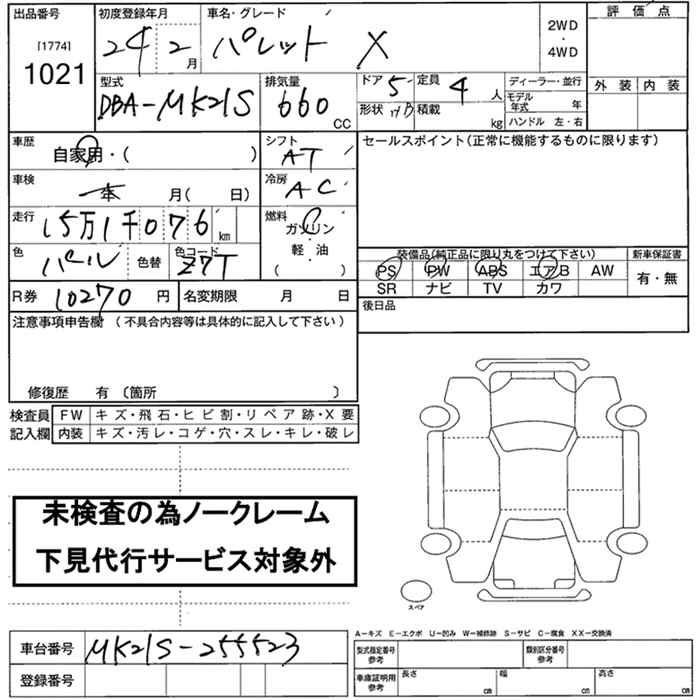 出品番号
[1774]
1021
初度登録年月
24 2 月
車名・グレード
パレット X
2WD
・
4WD
評価点
外装 内装
型式
DBA-MK21S
排気量
660 CC
ドア 5
形状 HB
定員 4 人
積載 kg
ディーラー・並行
モデル年式 年
ハンドル 左・右
車歴
自家用・( )
シフト
AT
車検
本 月( 日)
冷房
AC
走行
15万1千076 km
燃料
ガソリン
・
軽・油
( )
色
パール
色替
色コード
Z7T
R券 10270 円
名変期限 月 日
セールスポイント(正常に機能するものに限ります)
装備品(純正品に限り丸をつけて下さい)
PS PW ABS エアB AW
SR ナビ TV カワ
新車保証書
有・無
後日品
注意事項申告欄 (不具合内容等は具体的に記入して下さい)
修復歴 有 〔箇所 〕
検査員記入欄
FW キズ・飛石・ヒビ割・リペア跡・X要
内装 キズ・汚レ・コゲ・穴・スレ・キレ・破レ
未検査の為ノークレーム
下見代行サービス対象外
スペア
A−キズ E−エクボ U−凹み W−補修跡 S−サビ C−腐食 XX−交換済
車台番号 MK21S-255523
登録番号
型式指定番号 参考
類別区分番号 参考
車庫証明用 参考
長さ cm 幅 cm 高さ cm